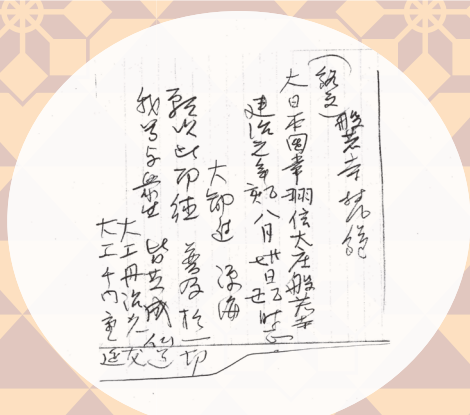 (銘文) 般若寺梵鐘
大日本国常州信太庄般若寺
建治元年乙亥八月廿七日乙丑時正
大勧進 源海
願以此功徳 普及於一切
我等与衆生 皆共成仏道
大工丹治久友
大工千門重延